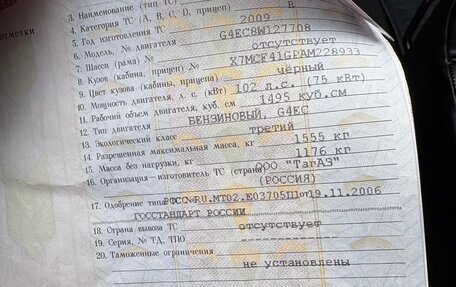 отметки
3. Наименование (тип ТС)
4. Категория ТС (А, В, С, D, прицеп)
5. Год изготовления ТС 2009
6. Модель, № двигателя G4EC8W127708
7. Шасси (рама) № отсутствует
8. Кузов (кабина, прицеп) № X7MCF41GPAM228933
9. Цвет кузова (кабины, прицепа) чёрный
10. Мощность двигателя, л. с. (кВт) 102 л.с. (75 кВт)
11. Рабочий объем двигателя, куб. см 1495 куб.см
12. Тип двигателя БЕНЗИНОВЫЙ, G4EC
13. Экологический класс третий
14. Разрешенная максимальная масса, кг 1555 кг
15. Масса без нагрузки, кг 1176 кг
16. Организация—изготовитель ТС (страна) ООО "ТагАЗ"
(РОССИЯ)
17. Одобрение типа РТС № RU.MT02.E03705П1 от 19.11.2006
ГОССТАНДАРТ РОССИИ
18. Страна вывоза ТС отсутствует
19. Серия, № ТД, ТПО
20. Таможенные ограничения
не установлены